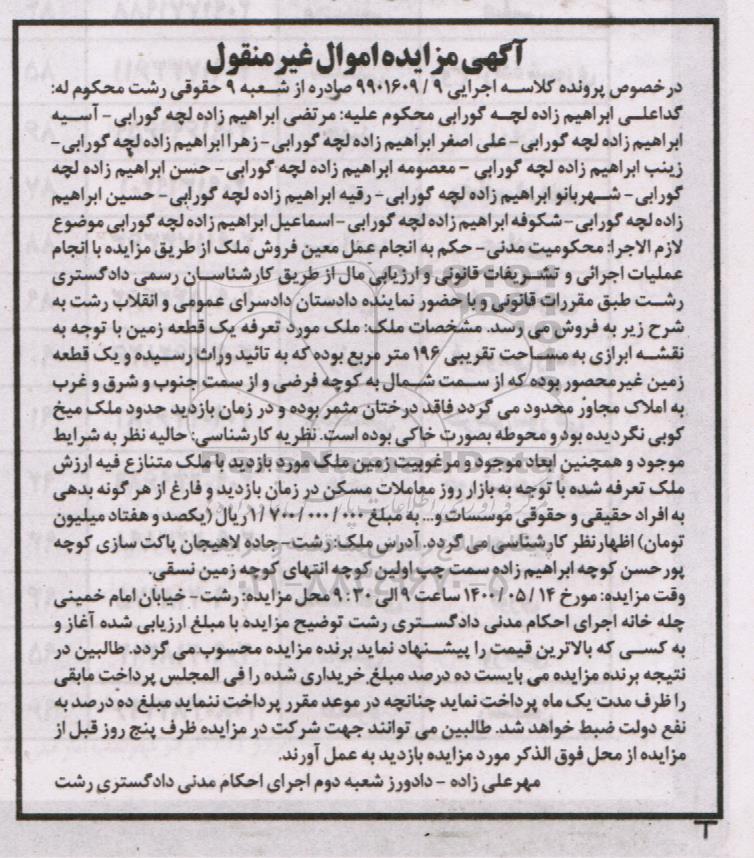 آگهی مزایده اموال غیر منقول
درخصوص پرونده کلاسه اجرایی ۹ / ۹۹۰۱۶۰۹ صادره از شعبه ۹ حقوقی رشت محکوم له:
گداعلی ابراهیم زاده لچه گورابی محکوم علیه: مرتضی ابراهیم زاده لچه گورابی - آسیه
ابراهیم زاده لچه گورابی - علی اصغر ابراهیم زاده لچه گورابی - زهرا ابراهیم زاده لچه گورابی -
زینب ابراهیم زاده لچه گورابی - معصومه ابراهیم زاده لچه گورابی - حسن ابراهیم زاده لچه
گورابی - شهربانو ابراهیم زاده لچه گورابی - رقیه ابراهیم زاده لچه گورابی - حسین ابراهیم
زاده لچه گورابی - شکوفه ابراهیم زاده لچه گورابی - اسماعیل ابراهیم زاده لچه گورابی موضوع
لازم الاجرا: محکومیت مدنی - حکم به انجام عمل معین فروش ملک از طریق مزایده با انجام
عملیات اجرائی و تشریفات قانونی و ارزیابی مال از طریق کارشناسان رسمی دادگستری
رشت طبق مقررات قانونی و با حضور نماینده دادستان دادسرای عمومی و انقلاب رشت به
شرح زیر به فروش می رسد. مشخصات ملک: ملک مورد تعرفه یک قطعه زمین با توجه به
نقشه ابرازی به مساحت تقریبی ۱۹۶ متر مربع بوده که به تائید وراث رسیده و یک قطعه
زمین غیر محصور بوده که از سمت شمال به کوچه فرضی و از سمت جنوب و شرق و غرب
به املاک مجاور محدود می گردد فاقد درختان مثمر بوده و در زمان بازدید حدود ملک میخ
کوبی نگردیده بود و محوطه بصورت خاکی بوده است. نظریه کارشناسی: حالیه نظر به شرایط
موجود و همچنین ابعاد موجود و مرغوبیت زمین ملک مورد بازدید با ملک متنازع فیه ارزش
ملک تعرفه شده با توجه به بازار روز معاملات مسکن در زمان بازدید و فارغ از هر گونه بدهی
به افراد حقیقی و حقوقی موسسات و... به مبلغ ۱/۷۰۰/۰۰۰/۰۰۰ ریال (یکصد و هفتاد میلیون
تومان) اظهارنظر کارشناسی می گردد. آدرس ملک: رشت - جاده لاهیجان پاکت سازی کوچه
پورحسن کوچه ابراهیم زاده سمت چپ اولین کوچه انتهای کوچه زمین نسقی.
وقت مزایده: مورخ ۱۴ / ۰۵ / ۱۴۰۰ ساعت ۹ الی ۹:۳۰ محل مزایده: رشت - خیابان امام خمینی
چله خانه اجرای احکام مدنی دادگستری رشت توضیح مزایده با مبلغ ارزیابی شده آغاز و
به کسی که بالاترین قیمت را پیشنهاد نماید برنده مزایده محسوب می گردد. طالبین در
نتیجه برنده مزایده می بایست ده درصد مبلغ خریداری شده را فی المجلس پرداخت مابقی
را ظرف مدت یک ماه پرداخت نماید چنانچه در موعد مقرر پرداخت ننماید مبلغ ده درصد به
نفع دولت ضبط خواهد شد. طالبین می توانند جهت شرکت در مزایده ظرف پنج روز قبل از
مزایده از محل فوق الذکر مورد مزایده بازدید به عمل آورند.
مهرعلی زاده - دادورز شعبه دوم اجرای احکام مدنی دادگستری رشت